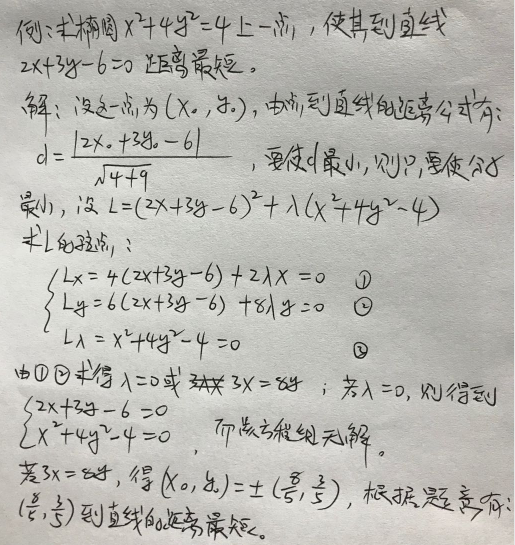 例:求椭圆 x²+4y²=4 上一点, 使其到直线
2x+3y-6=0 距离最短。
解: 设这一点为 (x₀, y₀), 由点到直线的距离公式有:
d = |2x₀+3y₀-6| / √(4+9) , 要使d最小, 则只要使分子
最小, 设 L=(2x+3y-6)²+λ(x²+4y²-4)
求L的驻点:
Lx = 4(2x+3y-6)+2λx=0 ①
Ly = 6(2x+3y-6)+8λy=0 ②
Lλ = x²+4y²-4=0 ③
由①②求得 λ=0或 3x=8y ; 若λ=0, 则得到
{2x+3y-6=0
{x²+4y²-4=0 , 而该方程组无解。
若3x=8y, 得 (x₀, y₀)=±(8/5, 3/5), 根据题意有:
(8/5, 3/5)到直线的距离最短。